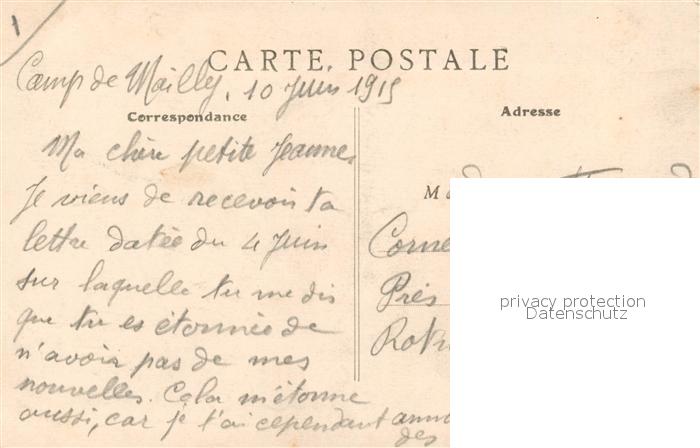 1
CARTE POSTALE
Camp de Mailly, 10 Juin 1915
Correspondance
Adresse
Ma chère petite Jeanne,
Je viens de recevoir ta
lettre datée du 4 Juin
sur laquelle tu me dis
que tu es étonnée de
n'avoir pas de mes
nouvelles. Cela m'étonne
aussi, car je t'ai cependant
des
M
Corne
Près
privacy protection
Datenschutz